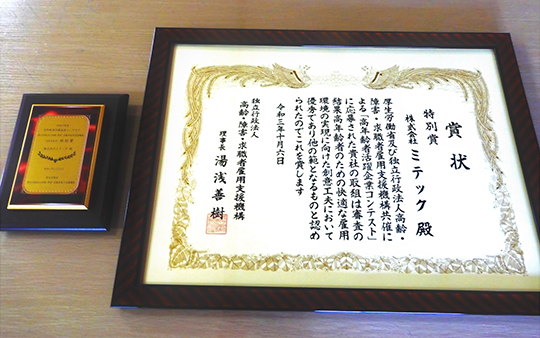 賞状
特別賞
株式会社 ミテック 殿
厚生労働省及び独立行政法人高齢・
障害・求職者雇用支援機構共催に
よる「高年齢者活躍企業コンテスト」
に応募された貴社の取組は審査の
結果高年齢者のための快適な雇用
環境の実現に向けた創意工夫において
優秀であり他の範となるものと認め
られたのでこれを賞します
令和三年十月六日
独立行政法人
高齢・障害・求職者雇用支援機構
理事長 湯浅善樹